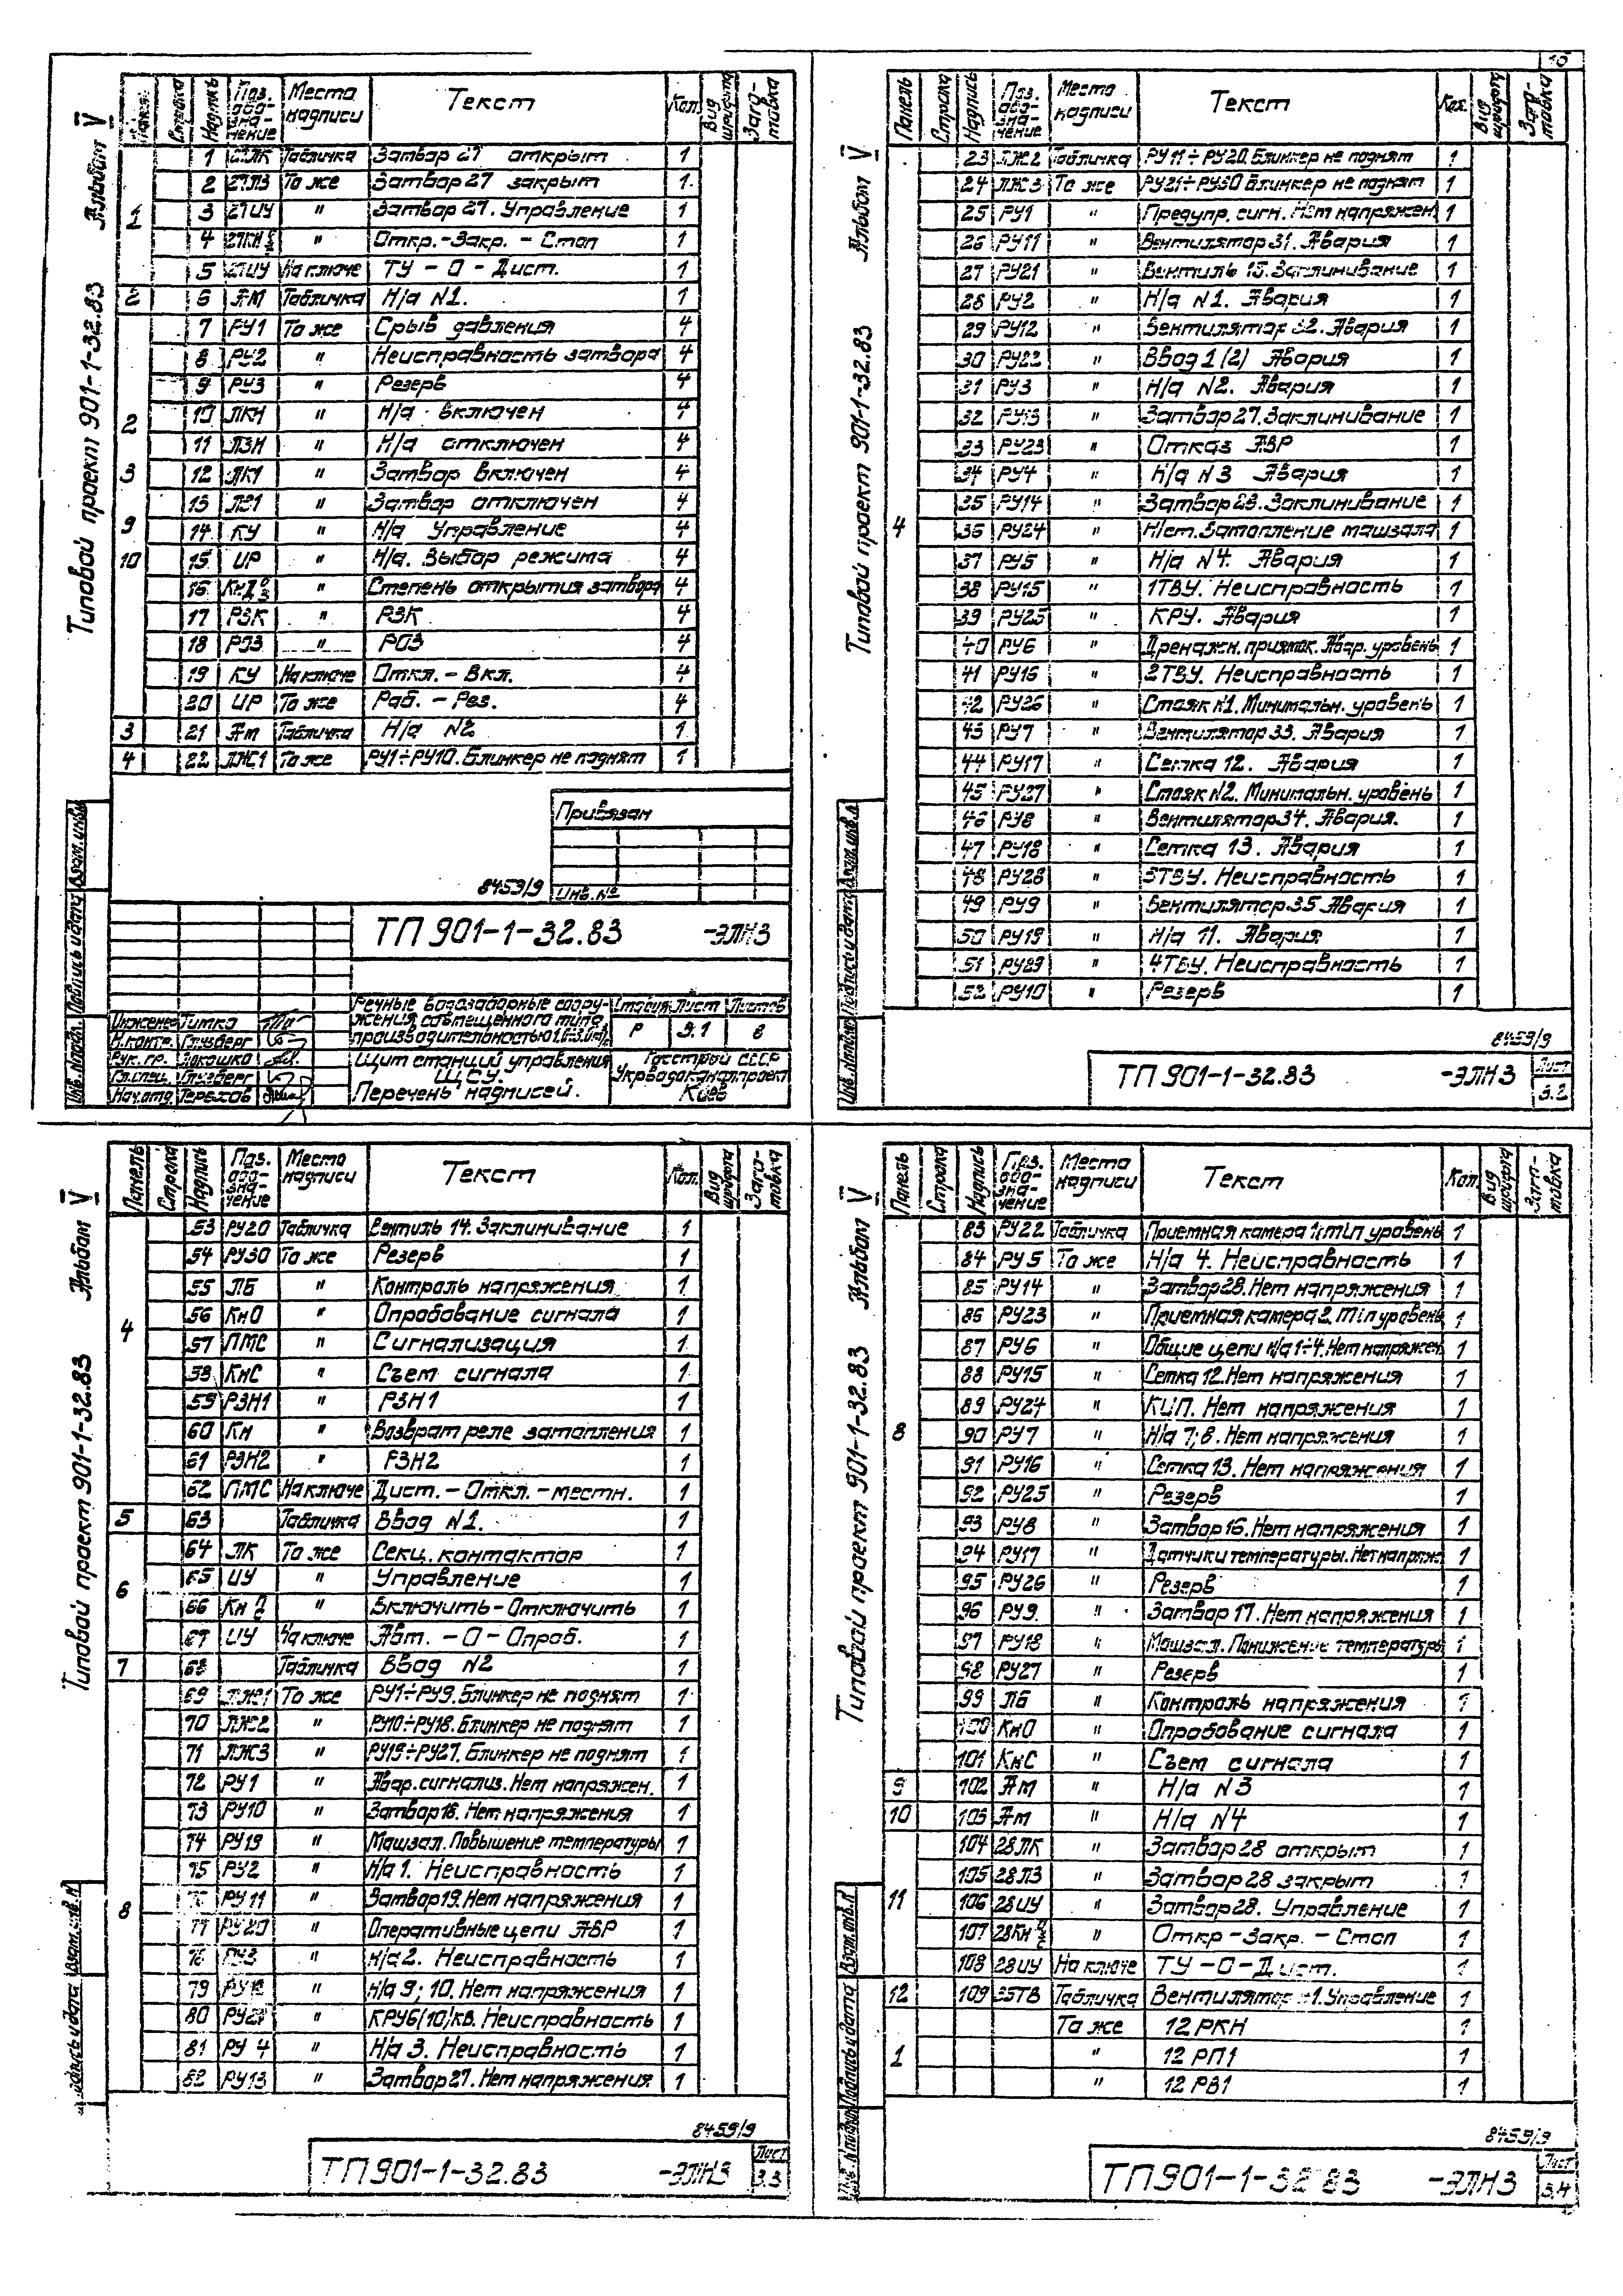 Альбом V
Типовой проект 901-1-32.83
Строка Надпись Поз. обозначение Место надписи Текст Кол. Вид шрифта Заготовка
1 1 27ЛК Табличка Затвор 27 открыт 1
2 27ЛЗ То же Затвор 27 закрыт 1
3 27ИУ " Затвор 27. Управление 1
4 " Откр.-Закр. - Стоп 1
5 27ИУ На ключе ТУ - О - Дист. 1
2 6 Ам Табличка Н/а N1. 1
7 РУ1 То же Срыв давления 4
8 РУ2 " Неисправность затвора 4
9 РУ3 " Резерв 4
2 10 ЛКН " Н/а включен 4
11 ЛЗН " Н/а отключен 4
3 12 ЛК1 " Затвор включен 4
13 ЛЗ1 " Затвор отключен 4
9 14 КУ " Н/а Управление 4
10 15 ИР " Н/а. Выбор режима 4
16 " Степень открытия затвора 4
17 РЗК " РЗК 4
18 РОЗ " РОЗ 4
19 КУ На ключе Откл. - Вкл. 4
20 ИР То же Раб. - Рез. 4
3 21 Ам Табличка Н/а N2 1
4 22 ЛЖ1 То же РУ1÷РУ10. Блинкер не поднят 1
Привязан
Инв. №
8459/9
ТП 901-1-32.83 -ЭЛН3
Речные водозаборные сооружения совмещенного типа производительностью
Стадия Лист Листов
Р 3.1 8
Инженер Титка
Н.контр. Глузберг
Рук. гр.
Гл.спец. Глузберг
Нач.отд. Терехов
Щит станций управления
ЩСУ.
Перечень надписей.
Госстрой СССР
Укрводоканалпроект
Киев
10
Альбом V
Типовой проект 901-1-32.83
Панель Строка Надпись Поз. обозначение Место надписи Текст Кол. Вид шрифта Заготовка
23 ЛЖ2 Табличка РУ11÷РУ20. Блинкер не поднят 1
24 ЛЖ3 То же РУ21÷РУ30 Блинкер не поднят 1
25 РУ1 " Предупр. сигн. Нет напряжен 1
26 РУ11 " Вентилятор 31. Авария 1
27 РУ21 " Вентиль 15. Заклинивание 1
28 РУ2 " Н/а N1. Авария 1
29 РУ12 " Вентилятор 32. Авария 1
30 РУ22 " Ввод 1(2) Авария 1
31 РУ3 " Н/а N2. Авария 1
32 РУ13 " Затвор 27. Заклинивание 1
33 РУ23 " Отказ АВР 1
34 РУ4 " Н/а N3 Авария 1
35 РУ14 " Затвор 28. Заклинивание 1
4 36 РУ24 " Н/ст. Затопление машзала 1
37 РУ5 " Н/а N4. Авария 1
38 РУ15 " 1ТВУ. Неисправность 1
39 РУ25 " КРУ. Авария 1
40 РУ6 " Дренажн. приямок. Авар. уровень 1
41 РУ16 " 2ТВУ. Неисправность 1
42 РУ26 " Стояк N1. Минимальн. уровень 1
43 РУ7 " Вентилятор 33. Авария 1
44 РУ17 " Сетка 12. Авария 1
45 РУ27 " Стояк N2. Минимальн. уровень 1
46 РУ8 " Вентилятор 34. Авария. 1
47 РУ18 " Сетка 13. Авария 1
48 РУ28 " 3ТВУ. Неисправность 1
49 РУ9 " Вентилятор 35 Авария 1
50 РУ19 " Н/а 11. Авария 1
51 РУ29 " 4ТВУ. Неисправность 1
52 РУ10 " Резерв 1
8459/9
ТП 901-1-32.83 -ЭЛН3 Лист 3.2
Альбом V
Типовой проект 901-1-32.83
Панель Строка Надпись Поз. обозначение Место надписи Текст Кол. Вид шрифта Заготовка
53 РУ20 Табличка Вентиль 14. Заклинивание 1
54 РУ30 То же Резерв 1
55 ЛБ " Контроль напряжения 1
56 КнО " Опробование сигнала 1
4 57 ПМС " Сигнализация 1
58 КнС " Съем сигнала 1
59 РЗН1 " РЗН1 1
60 Кн " Возврат реле затопления 1
61 РЗН2 " РЗН2 1
62 ПМС На ключе Дист. - Откл. - местн. 1
5 63 Табличка Ввод N1. 1
64 ЛК То же Секц. контактор 1
6 65 ИУ " Управление 1
66 Кн " Включить - Отключить 1
67 ИУ На ключе Авт. - О - Опроб. 1
7 68 Табличка Ввод N2 1
69 ЛЖ1 То же РУ1÷РУ9. Блинкер не поднят 1
70 ЛЖ2 " РУ10÷РУ18. Блинкер не поднят 1
71 ЛЖ3 " РУ19÷РУ27. Блинкер не поднят 1
72 РУ1 " Авар. сигнализ. Нет напряжен. 1
73 РУ10 " Затвор 18. Нет напряжения 1
74 РУ19 " Машзал. Повышение температуры 1
75 РУ2 " Н/а 1. Неисправность 1
8 76 РУ11 " Затвор 19. Нет напряжения 1
77 РУ20 " Оперативные цепи АВР 1
78 РУ3 " Н/а 2. Неисправность 1
79 РУ12 " Н/а 9; 10. Нет напряжения 1
80 РУ21 " КРУ6(10)кв. Неисправность 1
81 РУ 4 " Н/а 3. Неисправность 1
82 РУ13 " Затвор 27. Нет напряжения 1
8459/9
ТП 901-1-32.83 -ЭЛН3 Лист 3.3
Альбом V
Типовой проект 901-1-32.83
Панель Строка Надпись Поз. обозначение Место надписи Текст Кол. Вид шрифта Заготовка
83 РУ22 Табличка Приемная камера 1. min уровень 1
84 РУ5 То же Н/а 4. Неисправность 1
85 РУ14 " Затвор 28. Нет напряжения 1
86 РУ23 " Приемная камера 2. min уровень 1
87 РУ6 " Общие цепи н/а 1÷4. Нет напряжен 1
88 РУ15 " Сетка 12. Нет напряжения 1
89 РУ24 " КИП. Нет напряжения 1
8 90 РУ7 " Н/а 7; 8. Нет напряжения 1
91 РУ16 " Сетка 13. Нет напряжения 1
92 РУ25 " Резерв 1
93 РУ8 " Затвор 16. Нет напряжения 1
94 РУ17 " Датчики температуры. Нет напряж. 1
95 РУ26 " Резерв 1
96 РУ9. " Затвор 17. Нет напряжения 1
97 РУ18 " Машзал. Понижение температуры 1
98 РУ27 " Резерв 1
99 ЛБ " Контроль напряжения 1
100 КнО " Опробование сигнала 1
101 КнС " Съем сигнала 1
9 102 Ам " Н/а N3 1
10 103 Ам " Н/а N4 1
104 28ЛК " Затвор 28 открыт 1
105 28ЛЗ " Затвор 28 закрыт 1
11 106 28ИУ " Затвор 28. Управление 1
107 28Кн " Откр - Закр. - Стоп 1
108 28ИУ На ключе ТУ - О - Дист. 1
12 109 35ТВ Табличка Вентилятор Управление 1
То же 12РКН 1
1 " 12РП1 1
" 12РВ1 1
8459/9
ТП 901-1-32.83 -ЭЛН3 Лист 3.4